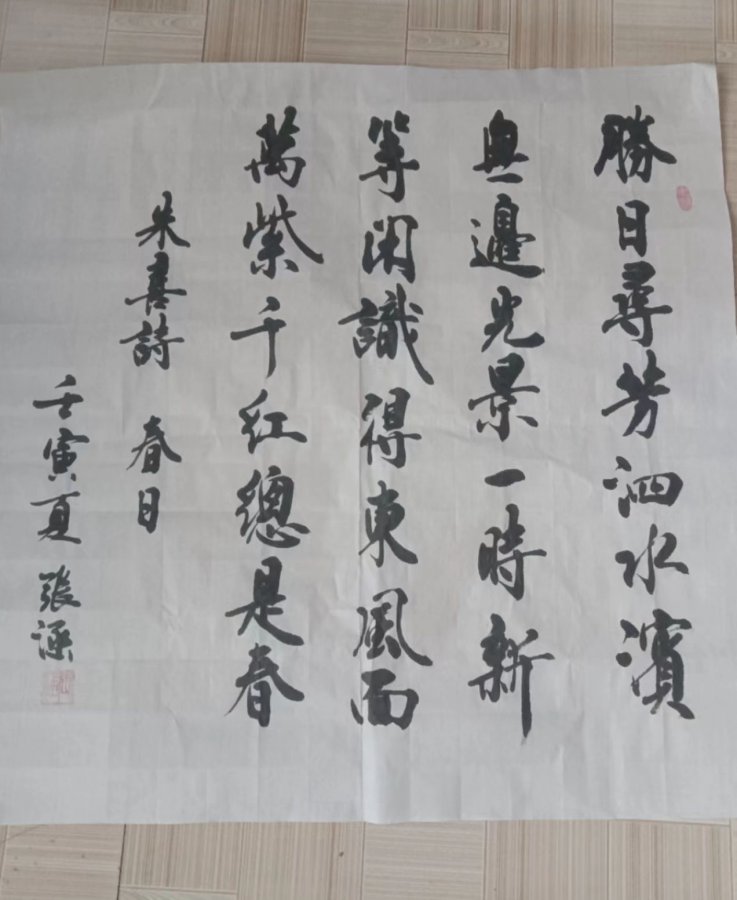 勝日尋芳泗水濱
無邊光景一時新
等閑識得東風面
萬紫千紅總是春
朱熹詩 春日
壬寅夏 張